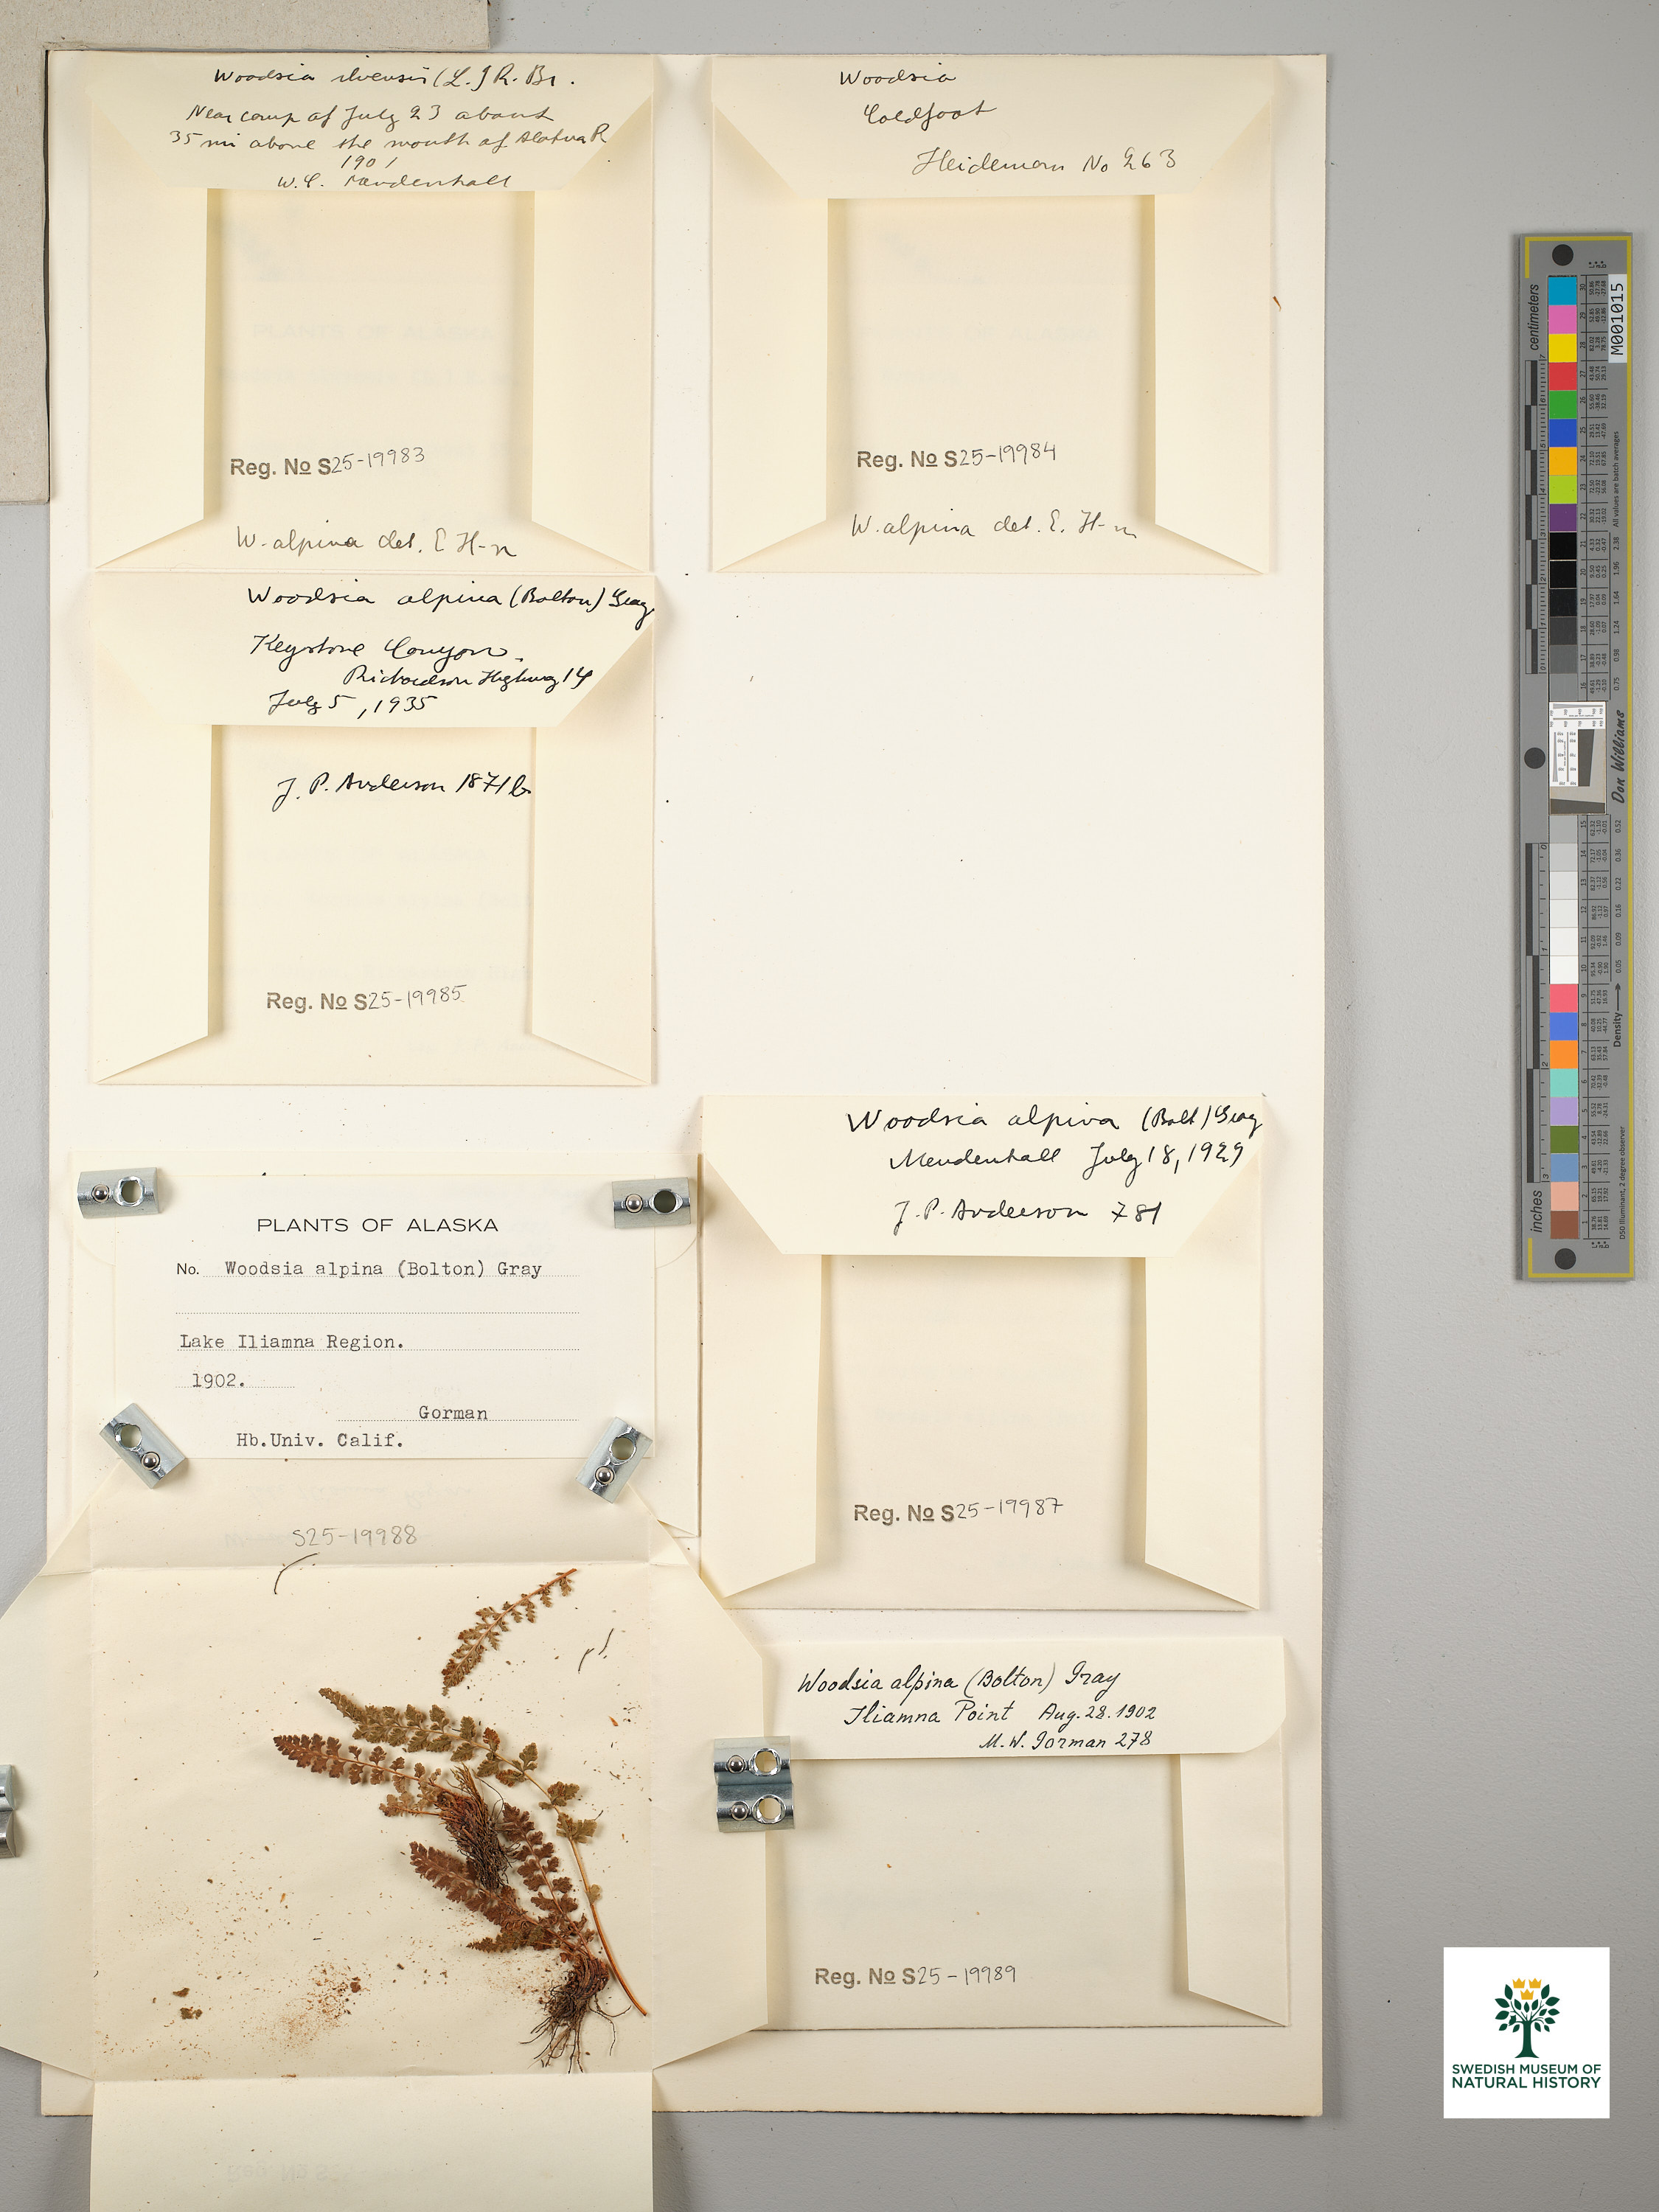 Woodsia ilvensis (L.) R. Br.
Near camp of July 23 about
35 mi above the mouth of Alatna R
1901
W.C. Mendenhall
Reg. No S25-19983
W. alpina det. E H-n
Woodsia
Coldfoot
Heideman No 263
Reg. No S25-19984
W. alpina det. E. H-n
Woodsia alpina (Bolton) Gray
Keystone Canyon.
Richardson Highway 14
July 5, 1935
J. P. Anderson 1871b
Reg. No S25-19985
PLANTS OF ALASKA
No. Woodsia alpina (Bolton) Gray
Lake Iliamna Region.
1902.
Gorman
Hb.Univ. Calif.
S25-19988
Woodsia alpina (Bolt) Gray
Mendenhall July 18, 1929
J. P. Anderson 781
Reg. No S25-19987
Woodsia alpina (Bolton) Gray
Iliamna Point Aug. 28. 1902
M. W. Gorman 278
Reg. No S25-19989
centimeters
M001015
All values are batch averages
Don Williams
Density
inches
D50 Illuminant, 2 degree observer
SWEDISH MUSEUM OF
NATURAL HISTORY